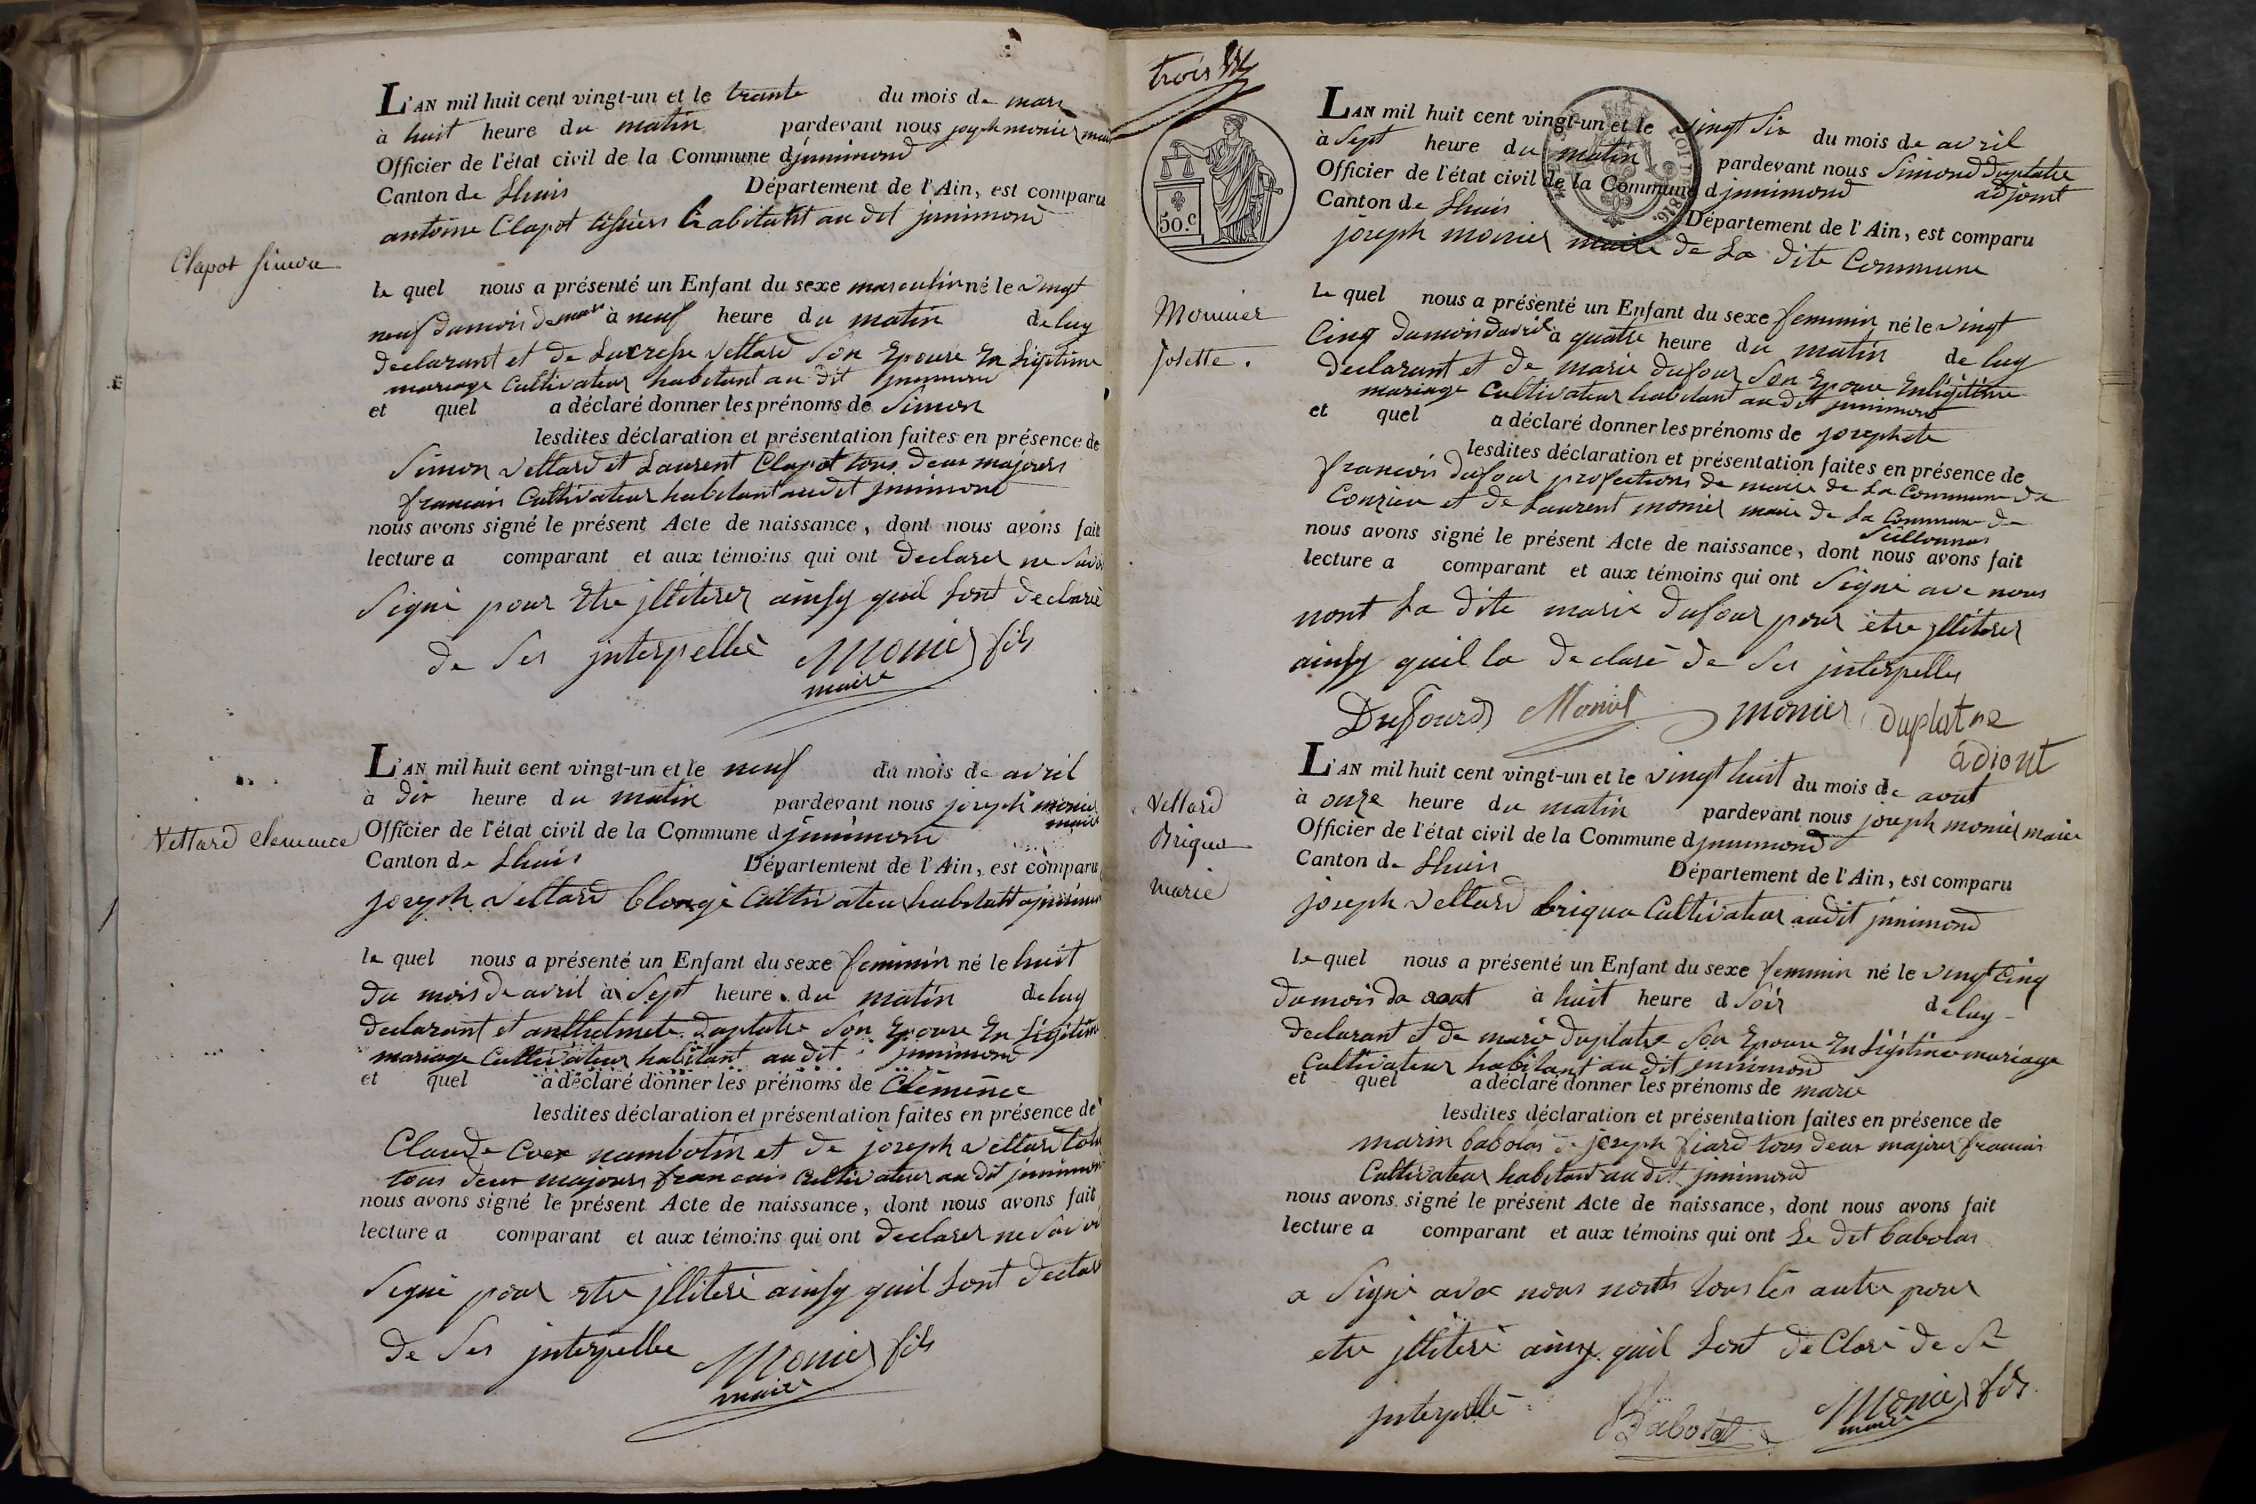 Clapot Simon
L'AN mil huit cent vingt-un et le trante du mois de mars
à huit heure du matin pardevant nous joseph monier maire
Officier de l'état civil de la Commune d jnnimond
Canton de Lhuis Département de l'Ain, est comparu
antoine Clapot habitant au dit jnnimond
le quel nous a présenté un Enfant du sexe masculin né le vingt
neuf du mois de mars à neuf heure du matin de luy
declarant et de Vettard son Epouse En Légitime
mariage Cultivateur habitant au dit jnnimond
et quel a déclaré donner les prénoms de Simon
lesdites déclaration et présentation faites en présence de
Simon Vettard et Laurent Clapot tous deux majours
francais Cultivateur habitant audit jnnimond
nous avons signé le présent Acte de naissance, dont nous avons fait
lecture a comparant et aux témoins qui ont declarer ne Savoi
Signé pour Etre jlliterer ainsy quil Lont declaré
de Ses jnterpellée Monier fils
maire
Vettard Clemence
L'AN mil huit cent vingt-un et le neuf du mois de avril
à dix heure du matin pardevant nous joseph monier
maire
Officier de l'état civil de la Commune d jnnimond
Canton de Lhuis Département de l'Ain, est comparu
joseph Vettard Clongé Cultivateur habitant ajnnimon
le quel nous a présenté un Enfant du sexe feminin né le huit
du mois de avril à Sept heure du matin de luy
declarant et anthelmete duplatre Son Epouse En Légitime
mariage Cultivateur habitant au dit jnnimond
et quel a déclaré donner les prénoms de Clemence
lesdites déclaration et présentation faites en présence de
Claude Coex nambotin et de joseph Vettard
tous deux majours francais Cultivateur au dit jnnimon
nous avons signé le présent Acte de naissance, dont nous avons fait
lecture a comparant et aux témoins qui ont declarer ne Savoi
Signé pour etre jlliteré ainsy quil Lont declar
de Ses jnterpellee Monier fils
maire
trois
50.C
LOI DE 1816.
Monnier
Josette.
L'AN mil huit cent vingt-un et le vingt Six du mois de avril
à Sept heure du matin pardevant nous Simond duplatre
adjoint
Officier de l'état civil de la Commune d jnnimond
Canton de Lhuis Département de l'Ain, est comparu
joseph monier maire de La dite Commune
le quel nous a présenté un Enfant du sexe feminin né le vingt
Cinq du mois davril à quatre heure du matin de luy
declarant et de marie dufour Son Epouse En légitime
mariage Cultivateur habitant au dit jnnimond
et quel a déclaré donner les prénoms de josephete
lesdites déclaration et présentation faites en présence de
francois dufour de maire de La Commune de
Conzieu et de Laurent monier maire de La Commune de
Seillonnas
nous avons signé le présent Acte de naissance, dont nous avons fait
lecture a comparant et aux témoins qui ont Signé ave nous
nont La dite marie dufour pour être jlliterer
ainsy quil la declaré de Ses jnterpelles
Duffourd Monier monier duplatre
adiont
Vettard
Briqua
Marie
L'AN mil huit cent vingt-un et le vingt huit du mois de aout
à onze heure du matin pardevant nous joseph monier maire
Officier de l'état civil de la Commune d jnnimond
Canton de Lhuis Département de l'Ain, est comparu
joseph Vettard briqua Cultivateur audit jnnimond
le quel nous a présenté un Enfant du sexe feminin né le vingt Cinq
du mois de aout à huit heure d Soir de luy
declarant et de marie duplatre Son Epouse En Légitime mariage
Cultivateur habitant au dit jnnimond
et quel a déclaré donner les prénoms de marie
lesdites déclaration et présentation faites en présence de
marin babolas joseph fiard tous deux majour francais
Cultivateur habitant au dit jnnimond
nous avons signé le présent Acte de naissance, dont nous avons fait
lecture a comparant et aux témoins qui ont Le dit babolas
a Signé avec nous tous les autre pour
etre jlliteré ainsy quil Lont deClaré de Se
jnterpellé Babolat Monier fils
maire